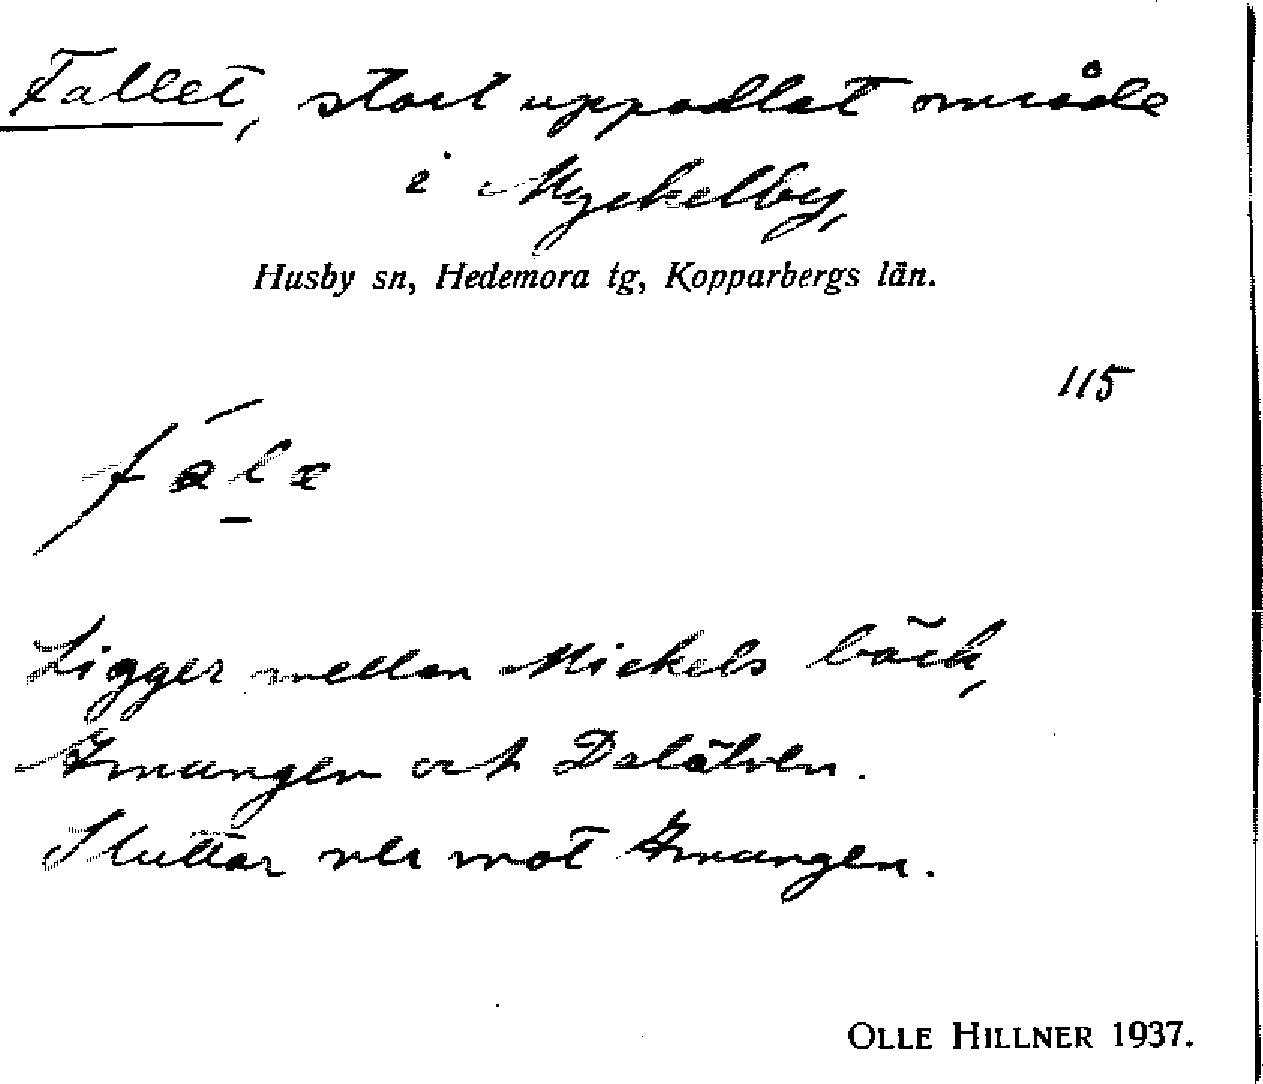 Fallet, stort uppodlat område
i Myckelby,
Husby sn, Hedemora tg, Kopparbergs län.
115
Ligger mellan Mickels bäck,
Amungen och Dalälven.
Sluttar ner mot Amungen.
OLLE HILLNER 1937.